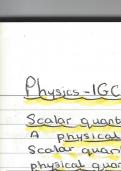 Physics-IGC
Scalar quant
A physical
Scalar quan
physical quan